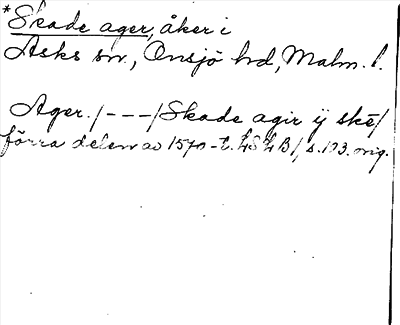 *Skade ager, åker i
Asks sn., Onsjö hd, Malm. l.
Ager. /---/ Skade agir ÿ skē/
förra delen av 1570-t. LSLB1, s. 123. orig.